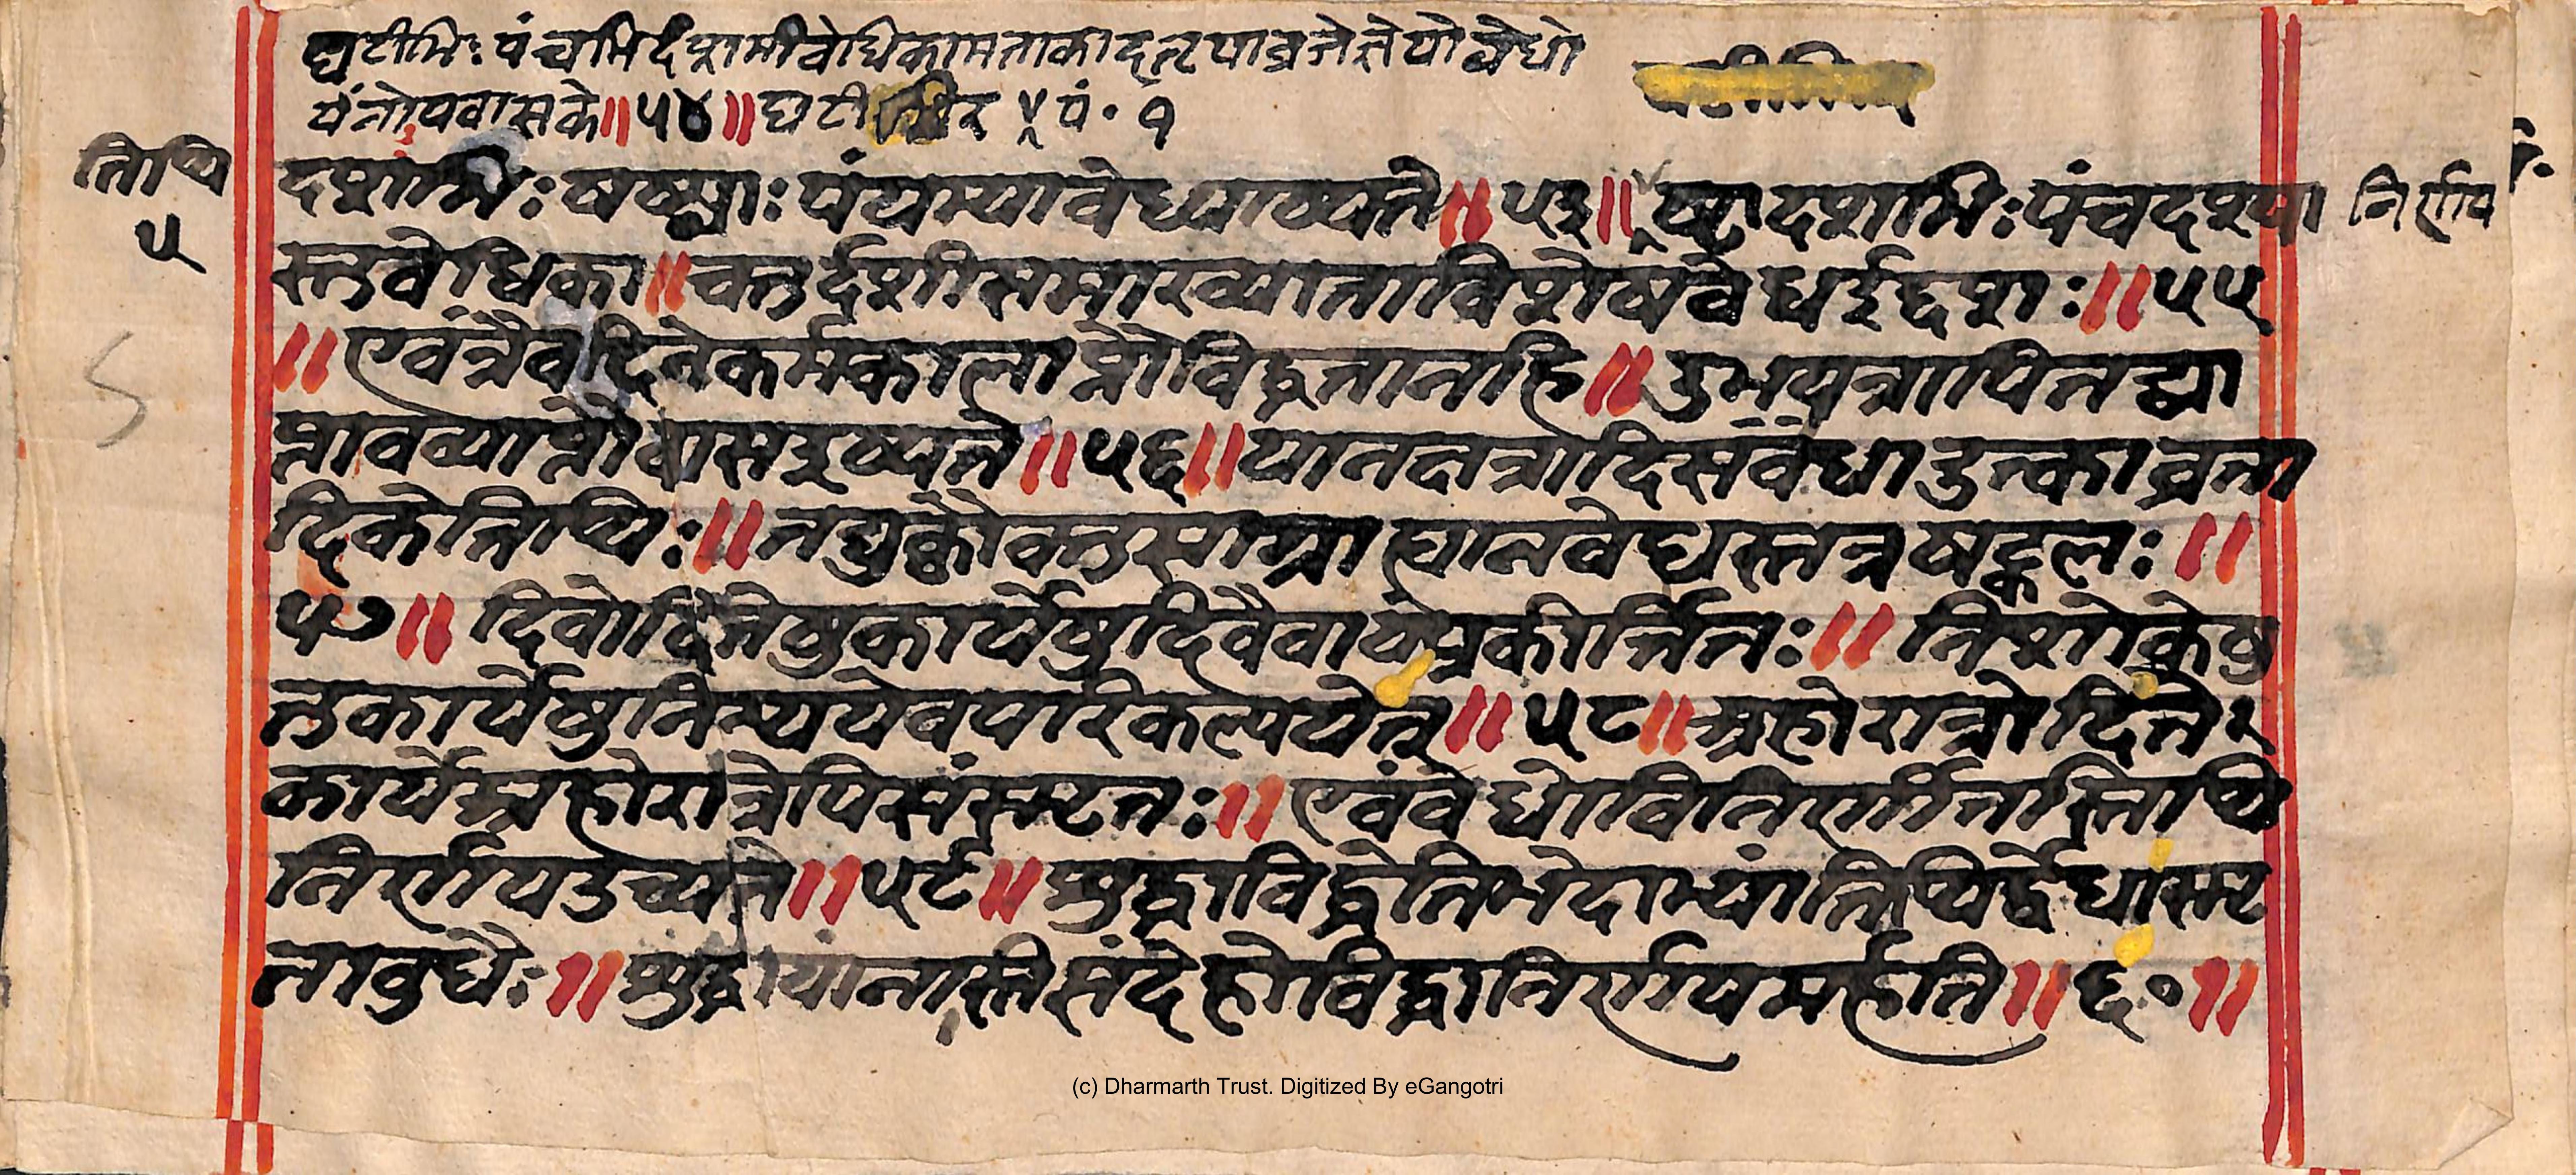 घटीभिः पंचभिर्दशमीवेधिकामताकादल्पाव्रजेत्तेयोवेधो
यंनोपवासके॥५४॥घटी ४ पं॰ १
तिथि
५
दशभिः षष्ठ्याः पंचम्यावेधउच्यते॥५३॥अष्टादशभिः पंचदश्या
निर्णय
स्तुवेधिका॥चतुर्दशीसमाख्याताविशेषवेधईदृशाः॥५५
॥एवंनैवदिनेकर्मकालाप्नौविद्धतानहि॥उभयत्रापितद्व्या
प्नावव्याप्नौवासउच्यते॥५६॥यानदानत्रादिसर्ववेधाउक्ताव्रता
दिकेतिथिः॥नद्युक्तौवस्तुसाम्राह्यानवेधस्तत्रषट्कलः॥
५७॥दिवोदितेषुकार्येषुदिवैवायंप्रकीर्त्तितः॥निशोक्तेषु
तुकार्येषुनिश्ययेवपरिकल्पयेत्॥५८॥अहोरात्रोदिते
कार्येअहोरात्रेपिसंस्मृतः॥एवंवेधोविनिर्णीतस्तिथि
निर्णयउच्यते॥५९॥शुद्धाविद्धेतिभेदाभ्यांतिथिर्द्वेधास्मृ
ताबुधैः॥शुद्धायांनास्तिसंदेहोविद्धानिर्णयमर्हति॥६०॥
(c) Dharmarth Trust. Digitized By eGangotri